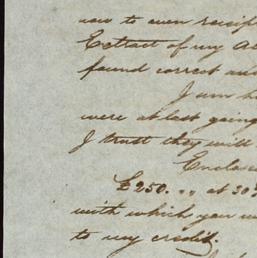 now to even
Extract of my
found correct and
I am
were at last going
I trust they will
Enclos
£250. „ at 30
with which you
to my credit.